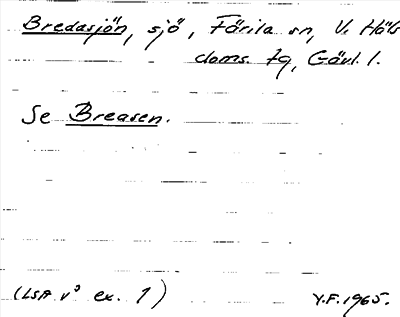 Bredasjön, sjö, Färila sn, V. Häls
doms. tg, Gävl. l.
Se Breasen.
(LSA v³ ex. 1)
Y.F. 1965.